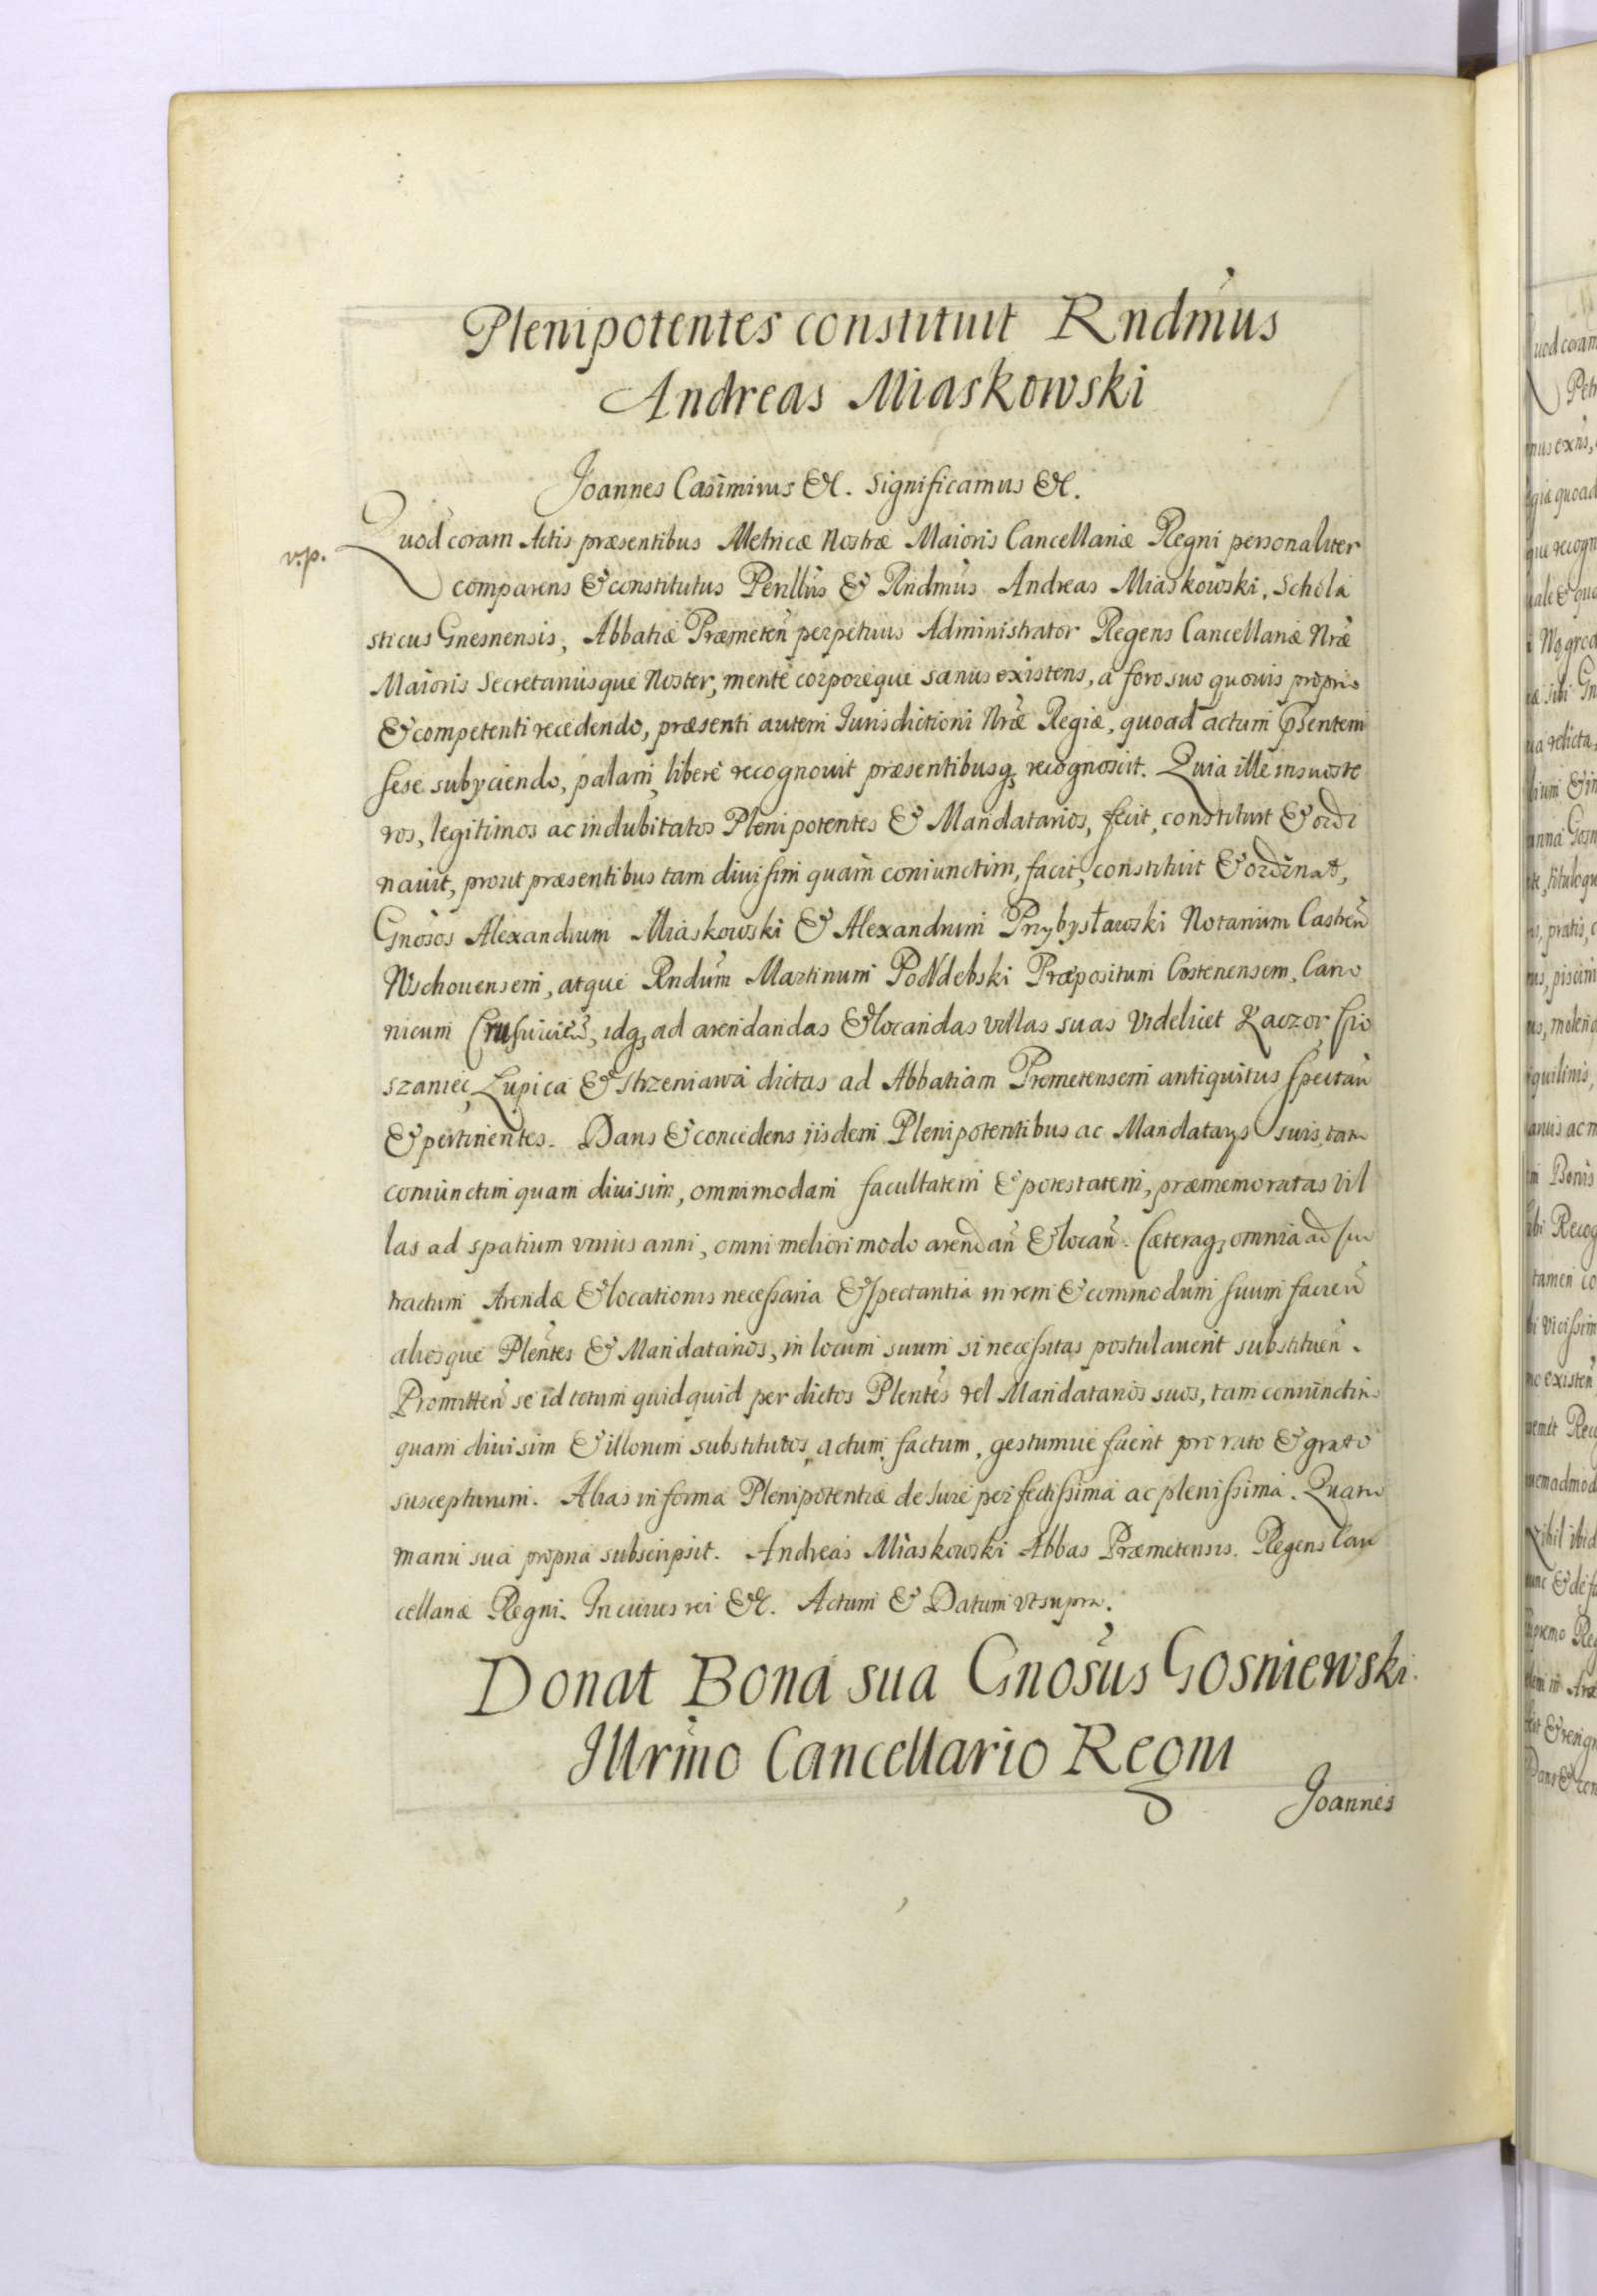 Plenipotentes constituit Rndm̃us
Andreas Miaskowski
Joannes Casimirus &c. Significamus &c.
v.p.
Quod coram Actis præsentibus Metricæ Nostræ Maioris Cancellariæ Regni personaliter
comparens & constitutus Perillũs & Rndmũs Andreas Miaskowski, Schola
sticus Gnesnensis, Abbatiæ Præmeten̄ perpetuus Administrator Regens Cancellariæ Nræ̃
Maioris Secretariusque Noster, mente corporeque sanus existens, a foro suo quovis proprio
& competenti recedendo, præsenti autem Iurisdictioni Nræ̃ Regiæ, quoad actum p̃sentem
sese subyciendo, palam, libere recognovit præsentibusq; recognoscit. Quia ille in suos ve
ros, legitimos ac indubitatos Plenipotentes & Mandatarios, fecit, constituit & ordi
nauit, prout præsentibus tam diuisim quam coniunctim, facit, constituit & ordinat,
Gnõsos Alexandrum Miaskowski & Alexandrum Przybysławski Notarium Castreñ
Wschouensem, atque Rndũm Martinum Podebski Præpositum Costenensem, Cano
nicum Crusuicieñ, idq; ad arendandas & locandas villas suas videlicet Kaczor
szaniec, Łupica & Strzeniawa dictas ad Abbatiam Premetensem antiquitus spectañ
& pertinentes. Dans & concedens iisdem Plenipotentibus ac Mandatarys suis, tam
coniunctim quam diuisim, omnimodam facultatem & potestatem, præmemoratas vil
las ad spatium vnius anni, omni meliori modo arendañ & locañ. Cæteraq; omnia ad con
tractum Arendæ & locationis necessaria & spectantia in rem & commodum suum facieñ
aliosque Pleñtes & Mandatarios, in locum suum si necessitas postulauerit substitueñ.
Promitteñ se id totum quidquid per dictos Plentẽs vel Mandatarios suos, tam coniunctim
quam diuisim & illorum substitutos, actum, factum, gestumue fuerit pro rato & grato
suscepturum. Alias in forma Plenipotentiæ de Iure perfectissima ac plenissima. Quam
manu sua propria subscripsit. Andreas Miaskowski Abbas Præmetensis. Regens Can
cellariæ Regni. In cuius rei &c. Actum & Datum vt supra.
Donat Bona sua Gnosũs Gosniewski
Illrm̃o Cancellario Regni
Joannes